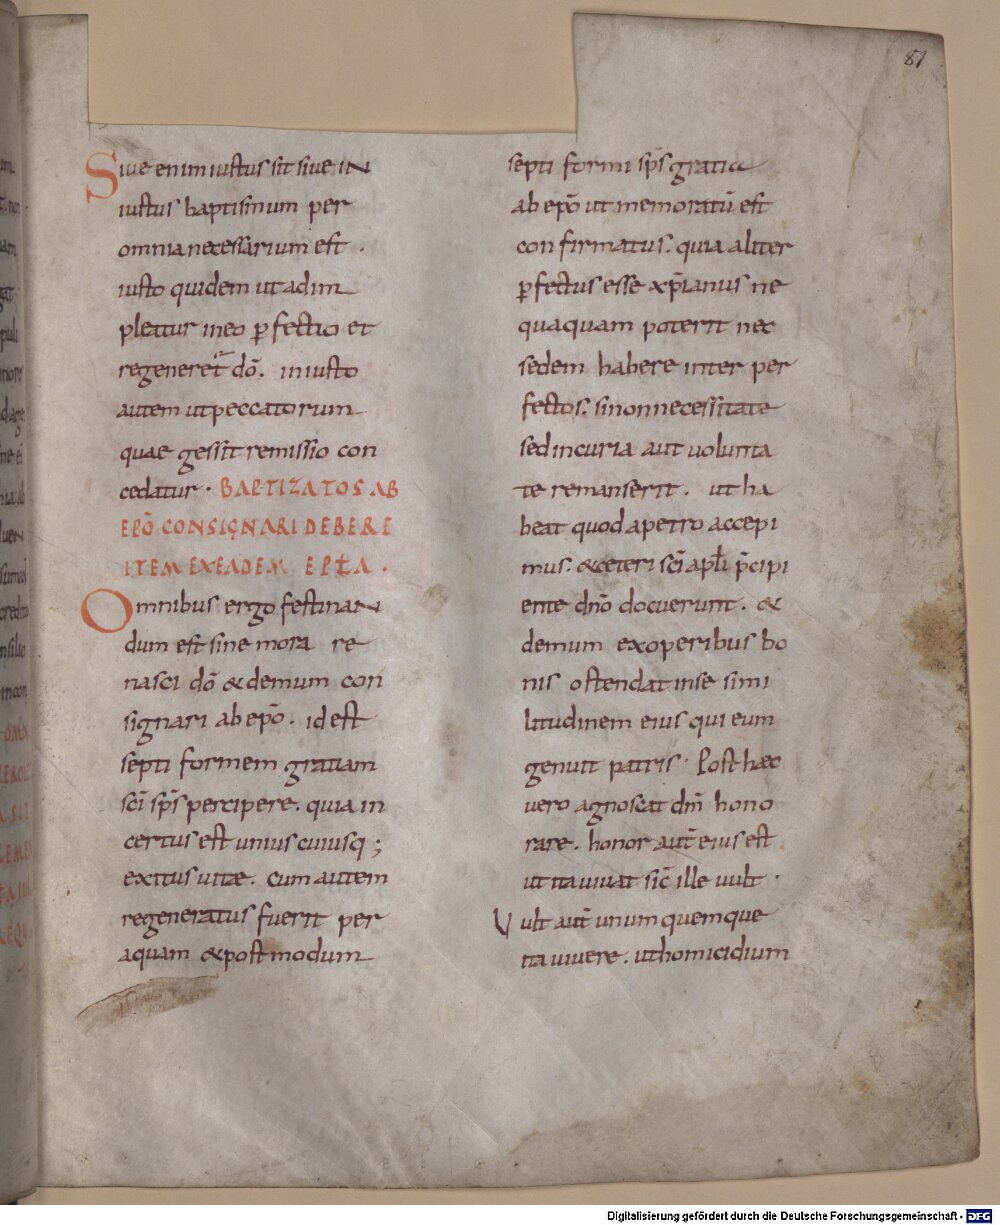 81
Siue enim iustus sit siue in
iustus baptismum per
omnia necessarium est .
iusto quidem ut adim
pleatur in eo ꝑfectio et
regeneret dō. iniusto
autem ut peccatorum
quae gessit remissio con
cedatur . BAPTIZATOS AB
EPŌ CONSIGNARI DEBERE
ITEM EX EADEM EPŁA .
Omnibus ergo festinan
dum est sine mora re
nasci dō & demum con
signari ab epō. id est
septiformem gratiam
sc̄i sp̄s percipere. quia in
certus est unius cuiusq;
exitus uitae. Cum autem
regeneratus fuerit per
aquam & postmodum
septiformi sp̄s gratia
ab epō ut memoratū est
confirmatus. quia aliter
ꝑfectus esse xp̄ianus ne
quaquam poterit nec
sedem habere inter per
fectos. si non necessitate
sed incuria aut uolunta
te remanserit. ut ha
beat quod a petro accepi
mus. & ceteri sc̄i apłi p̄cipi
ente dn̄o docuerunt. &
demum ex operibus bo
nis ostendat in se simi
litudinem eius qui eum
genuit patris. Post haec
uero agnoscat dm̄ hono
rare. honor aut̄ eius est
ut ita uiuat sic̄ ille uult .
Uult aut̄ unumquemque
ita uiuere. ut homicidium
Digitalisierung gefördert durch die Deutsche Forschungsgemeinschaft - DFG